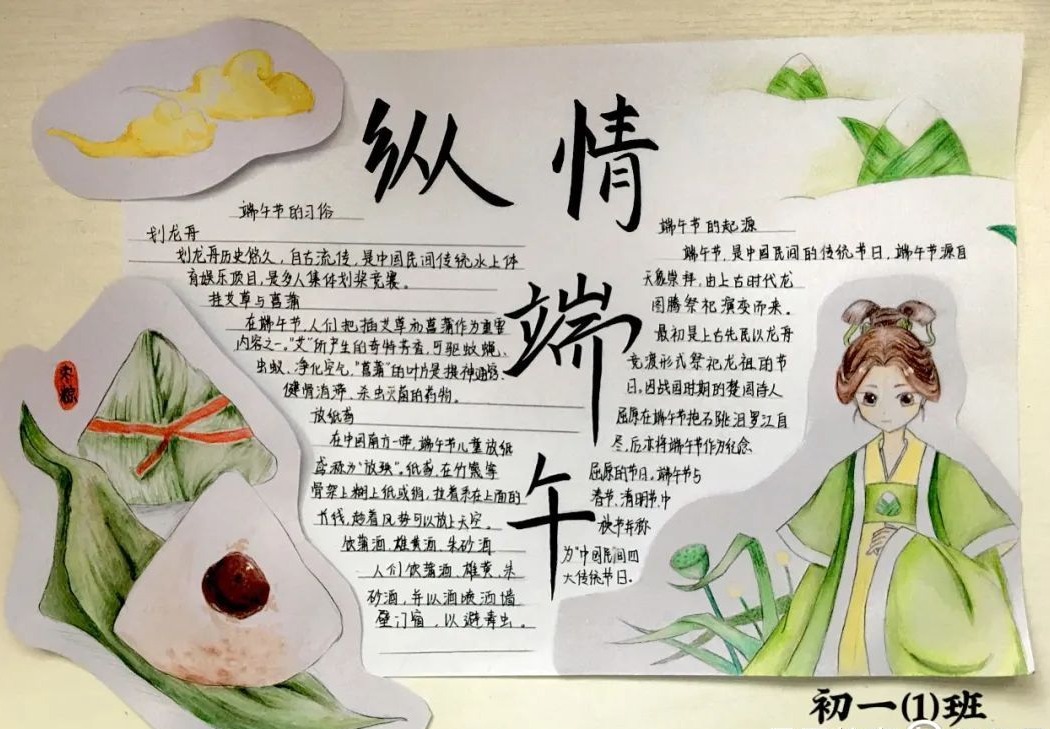 纵情
端
午
端午节的习俗
划龙舟
划龙舟历史悠久，自古流传，是中国民间传统水上体
育娱乐项目，是多人集体划桨竞赛。
挂艾草与菖蒲
在端午节，人们把插艾草和菖蒲作为重要
内容之一。"艾"所产生的奇特芳香，可驱蚊蝇、
虫蚁、净化空气，"菖蒲"的叶片是提神通窍、
健骨消滞、杀虫灭菌的药物。
放纸鸢
在中国南方一带，端午节儿童放纸
鸢称为"放殃"。纸鸢，在竹篾等
骨架上糊上纸或绢，拉着系在上面的
长线，趁着风势可以放上天空。
饮蒲酒、雄黄酒、朱砂酒
人们饮蒲酒、雄黄、朱
砂酒，并以酒喷洒墙
壁门窗，以避毒虫。
端午节的起源
端午节，是中国民间的传统节日，端午节源自
天象崇拜，由上古时代龙
图腾祭祀演变而来。
最初是上古先民以龙舟
竞渡形式祭祀龙祖的节
日。因战国时期的楚国诗人
屈原在端午节抱石跳汨罗江自
尽，后亦将端午节作为纪念
屈原的节日。端午节与
春节、清明节、中
秋节并称
为"中国民间四
大传统节日。
枣粽
初一(1)班